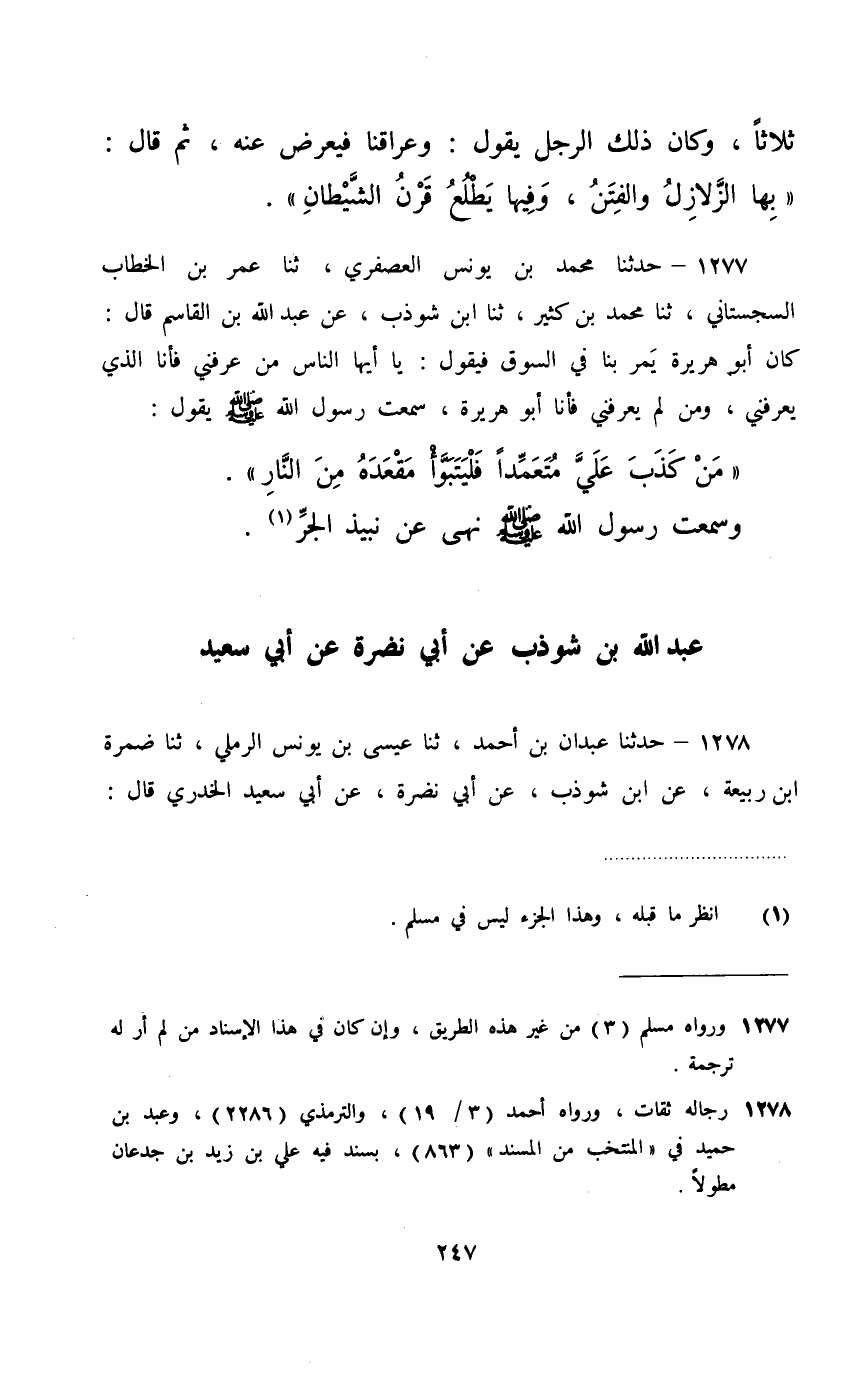 ثلاثاً ، وكان ذلك الرجل يقول : وعراقنا فيعرض عنه ، ثم قال :
« بِها الزَّلازِلُ والفِتَنُ ، وَفِيها يَطْلُعُ قَرْنُ الشَّيْطانِ » .
١٢٧٧ – حدثنا محمد بن يونس العصفري ، ثنا عمر بن الخطاب
السجستاني ، ثنا محمد بن كثير ، ثنا ابن شوذب ، عن عبد الله بن القاسم قال :
كان أبو هريرة يَمر بنا في السوق فيقول : يا أيها الناس من عرفني فأنا الذي
يعرفني ، ومن لم يعرفني فأنا أبو هريرة ، سمعت رسول الله ﷺ يقول :
« مَنْ كَذَبَ عَلَيَّ مُتَعَمِّداً فَلْيَتَبَوَّأْ مَقْعَدَهُ مِنَ النَّارِ » .
وسمعت رسول الله ﷺ نهى عن نبيذ الجرِّ (١) .
عبد الله بن شوذب عن أبي نضرة عن أبي سعيد
١٢٧٨ – حدثنا عبدان بن أحمد ، ثنا عيسى بن يونس الرملي ، ثنا ضمرة
ابن ربيعة ، عن ابن شوذب ، عن أبي نضرة ، عن أبي سعيد الخدري قال :
(١) انظر ما قبله ، وهذا الجزء ليس في مسلم .
١٢٧٧ ورواه مسلم (٣) من غير هذه الطريق ، وإن كان في هذا الإسناد من لم أر له
ترجمة .
١٢٧٨ رجاله ثقات ، ورواه أحمد (٣/ ١٩) ، والترمذي (٢٢٨٦) ، وعبد بن
حميد في « المنتخب من المسند » (٨٦٣) ، بسند فيه علي بن زيد بن جدعان
مطولاً .
٢٤٧